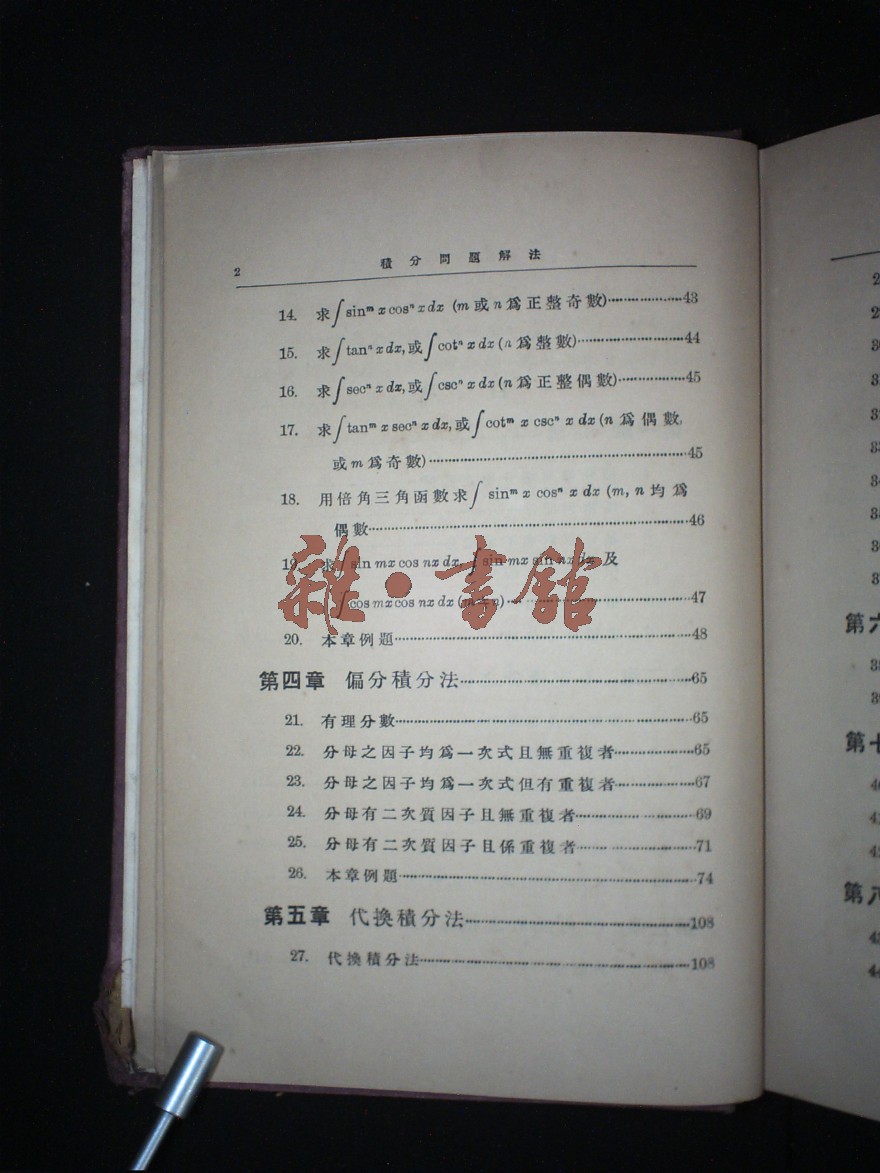 2 積分問題解法
14. 求∫sinᵐ x cosⁿ x dx (m或n爲正整奇數)··················43
15. 求∫tanⁿ x dx,或∫cotⁿ x dx (n爲整數)··················44
16. 求∫secⁿ x dx,或∫cscⁿ x dx (n爲正整偶數)··················45
17. 求∫tanᵐ x secⁿ x dx,或∫cotᵐ x cscⁿ x dx (n爲偶數,
或m爲奇數)··················45
18. 用倍角三角函數求∫sinᵐ x cosⁿ x dx (m, n均爲
偶數··················46
19. 求∫sin mx cos nx dx, ∫sin mx sin nx dx, 及
∫cos mx cos nx dx (m≠n)··················47
20. 本章例題··················48
第四章 偏分積分法··················65
21. 有理分數··················65
22. 分母之因子均爲一次式且無重複者··················65
23. 分母之因子均爲一次式但有重複者··················67
24. 分母有二次質因子且無重複者··················69
25. 分母有二次質因子且係重複者··················71
26. 本章例題··················74
第五章 代換積分法··················108
27. 代換積分法··················108
雜·書館
第六
第七